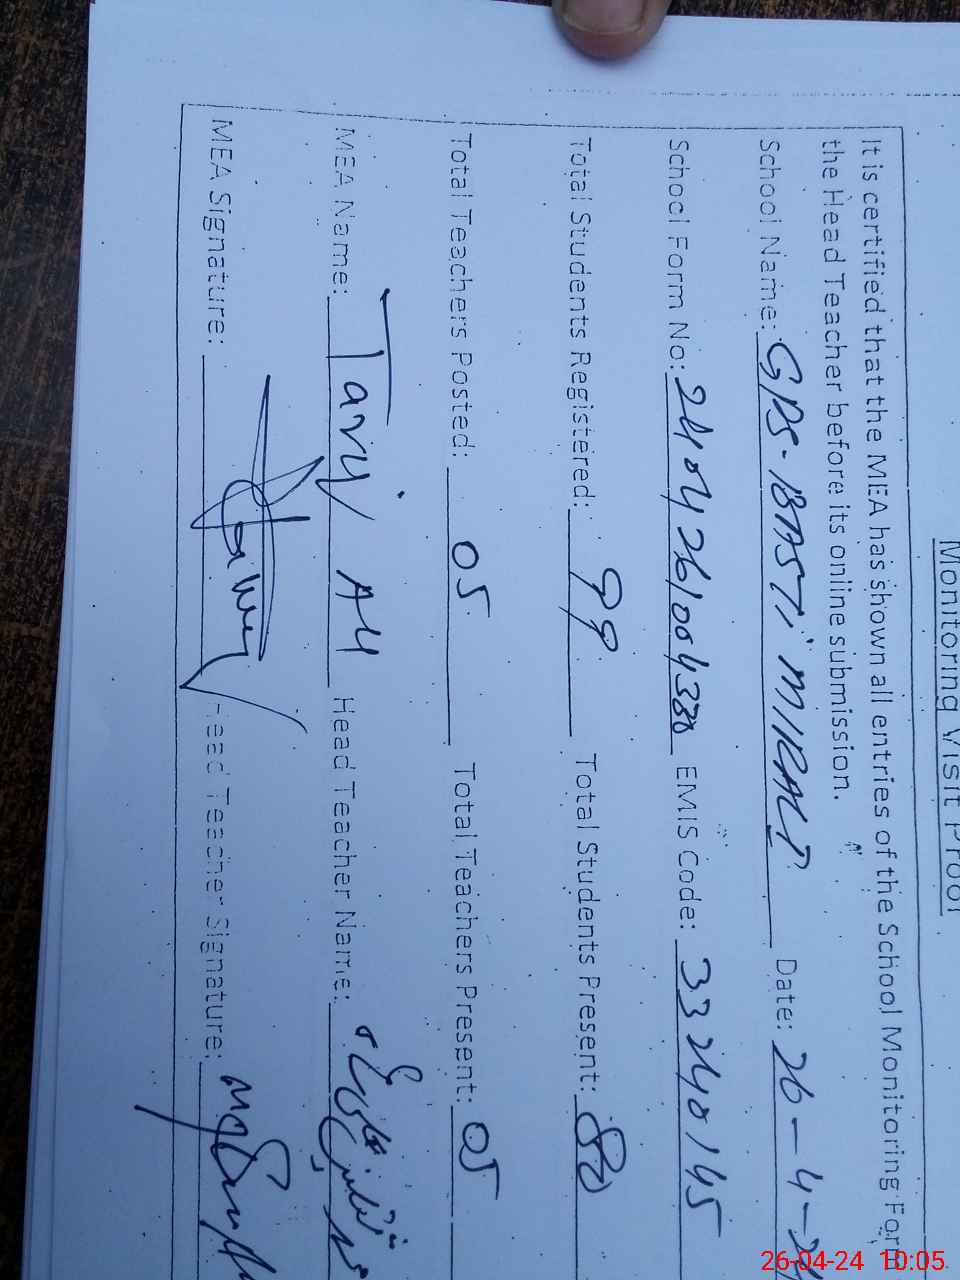 Monitoring Visit Proof
It is certified that the MEA has shown all entries of the School Monitoring Form
the Head Teacher before its online submission.
School Name: GPS-BASTI MIRALI Date: 26-4-24
School Form No: EMIS Code: 33240145
Total Students Registered: 99 Total Students Present: 80
Total Teachers Posted: 05 Total Teachers Present: 05
MEA Name: Head Teacher Name:
MEA Signature: Head Teacher Signature:
26-04-24 10:05